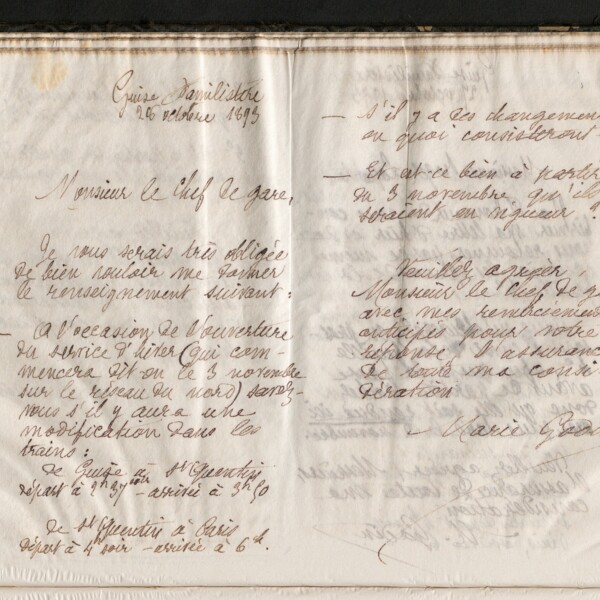 Guise Familistère
28 octobre 1893
Monsieur le Chef de gare,
Je vous serais très obligée
de bien vouloir me donner
le renseignement suivant :
— A l'occasion de l'ouverture
du service d'hiver (qui com-
mencera dit-on le 3 novembre
sur le réseau du nord) savez-
vous s'il y aura une
modification dans les
trains :
de Guise à St Quentin
départ à 2h 37 soir - arrivée à 3h 50
de St Quentin à Paris
départ à 4 soir - arrivée à 6h.
— S'il y a des changemen
en quoi consisteront
— Et est-ce bien à partir
du 3 novembre qu'ils
seraient en vigueur ?
Veuillez agréer,
Monsieur le Chef de g
avec mes remerciemen
anticipés pour votre
réponse, l'assuranc
de toute ma consi-
dération
Marie